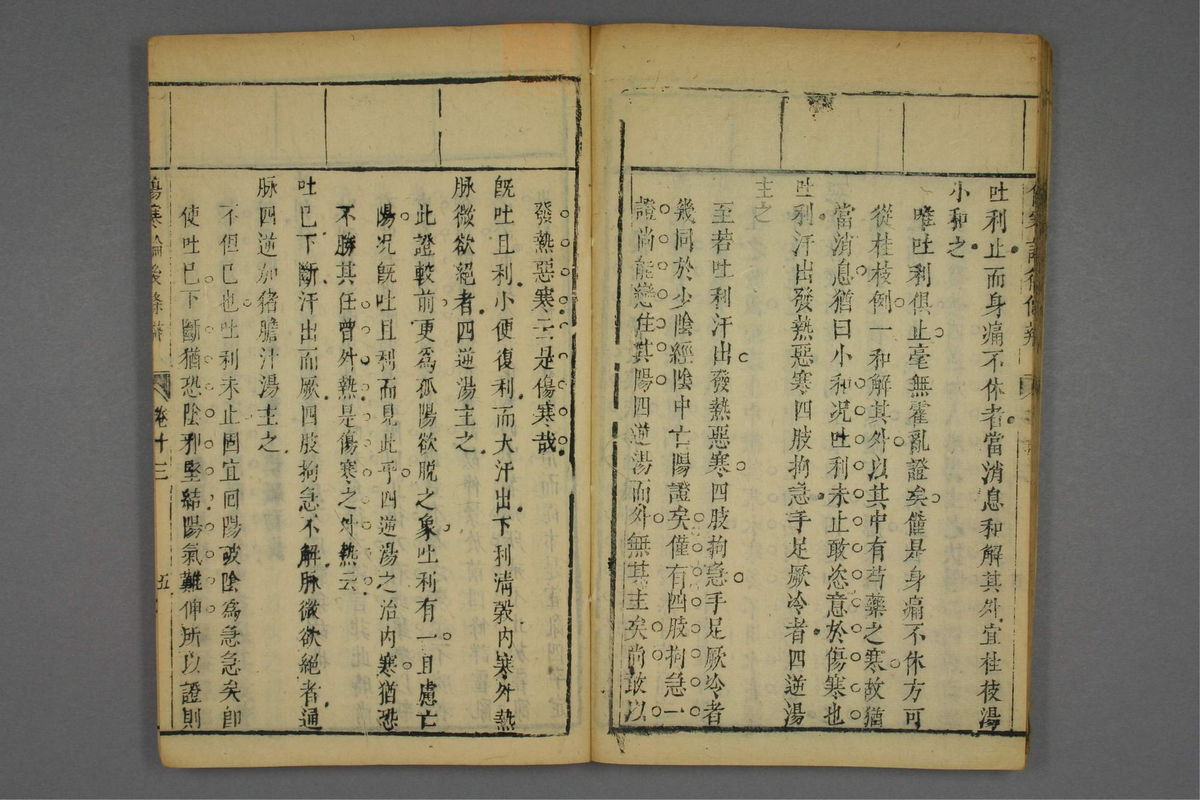 吐利止而身痛不休者當消息和解其外宜桂枝湯
小和之
唯吐利俱止毫無霍亂證矣僅是身痛不休方可
從桂枝例一和解其外以其中有芍藥之寒故猶
當消息猶曰小和况吐利未止敢恣意於傷寒也
吐利汗出發熱惡寒四肢拘急手足厥冷者四逆湯
主之
至若吐利汗出發熱惡寒四肢拘急手足厥冷者
幾同於少陰經陰中亡陽證矣僅有四肢拘急一
證尚能戀住其陽四逆湯而外無其主矣尚敢以
發熱惡寒二是傷寒哉
旣吐且利小便復利而大汗出下利淸穀內寒外熱
脉微欲絕者四逆湯主之
此證較前更爲孤陽欲脫之象吐利有一且慮亡
陽况旣吐且利而見此乎四逆湯之治內寒猶恐
不勝其任曾外熱是傷寒之外熱云
吐已下斷汗出而厥四肢拘急不解脉微欲絕者通
脉四逆加猪膽汁湯主之
不但已也吐利未止固宜回陽破陰爲急急矣卽
使吐已下斷猶恐陰邪堅結陽氣難伸所以證則
傷寒論後條辨 卷十三 五